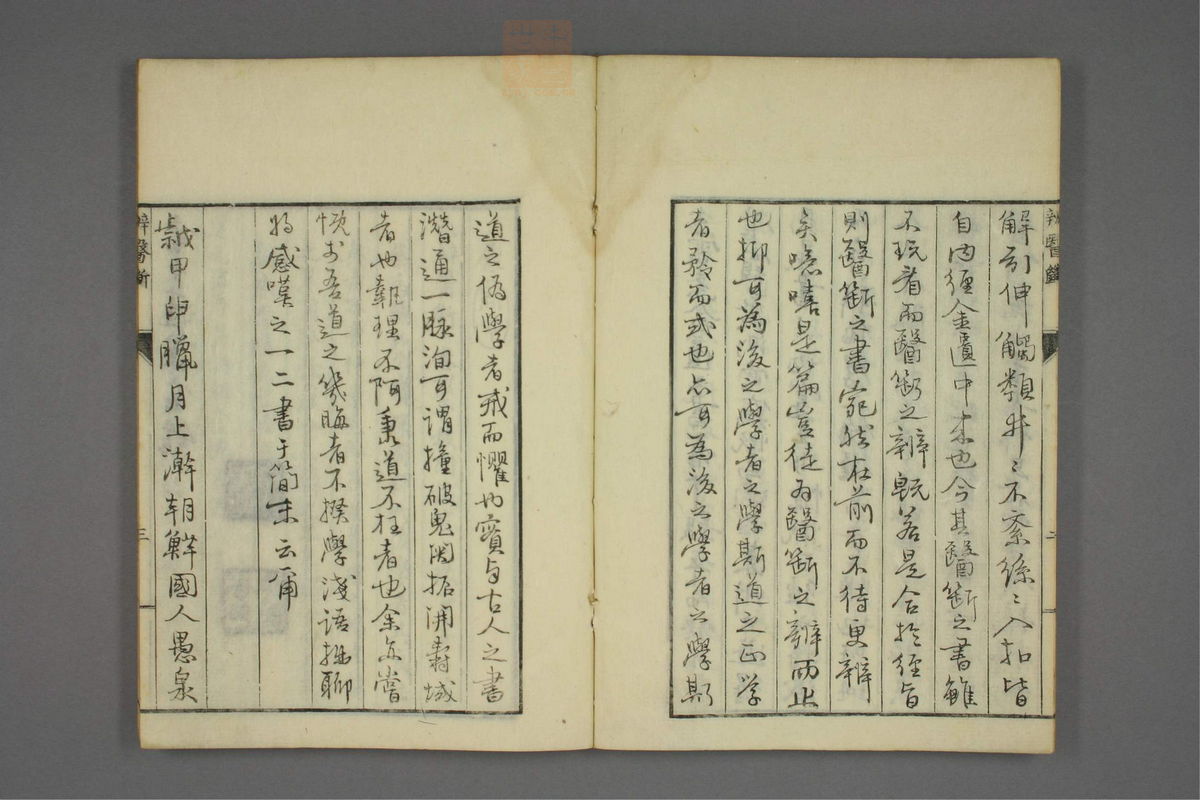 解引伸觸類井〻不紊絲〻入扣皆
自内經金匱中来也今其醫斷之書雖
不玩看而醫斷之辨既若是合於經旨
則醫斷之書宛然在前而不待更辨
矣噫嘻是篇豈徒為醫斷之辨而止
也抑可為後之學者之學斯道之正学
者矜而式也亦可為後之學者之學斯
道之偽學者戒而懼也實与古人之書
潛通一脉洵可謂撞破鬼関拓開壽域
者也執理不阿秉道不枉者也余亦嘗
恨於吾道之幾晦者不揆學淺語拙聊
將感嘆之一二書于簡末云爾
歲甲申臘月上澣朝鮮國人愚泉
辨醫斷
三